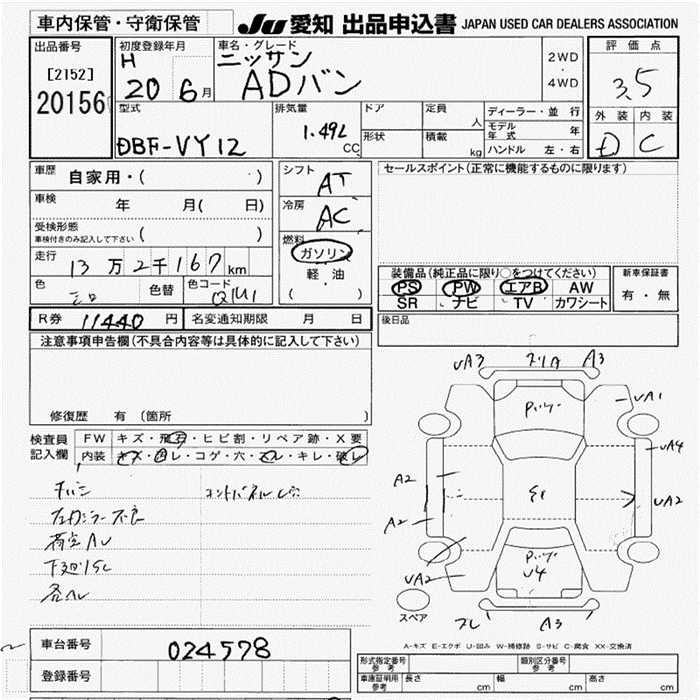 車内保管・守衛保管
JU 愛知 出品申込書 JAPAN USED CAR DEALERS ASSOCIATION
出品番号
[2152]
20156
初度登録年月
H
20 6月
車名・グレード
ニッサン
ADバン
2WD
・
4WD
評価点
3.5
外装 内装
D C
型式
DBF-VY12
排気量
1.49L
CC
ドア
定員
人
形状
積載
kg
ディーラー・並行
モデル年式 年
ハンドル 左・右
車歴 自家用・( )
車検 年 月( 日)
受検形態
車検付きのみ記入して下さい ( )
走行 13万2千167km
色 色替 色コード
R券 11440円 名変通知期限 月 日
シフト AT
冷房 AC
燃料
ガソリン
・
軽油
( )
セールスポイント(正常に機能するものに限ります)
装備品(純正品に限り○をつけてください)
PS PW エアB AW
SR ナビ TV カワシート
新車保証書
有・無
後日品
注意事項申告欄(不具合内容等は具体的に記入して下さい)
修復歴 有(箇所 )
検査員
記入欄
FW キズ・飛石・ヒビ割・リペア跡・X要
内装 キズ・汚レ・コゲ・穴・スレ・キレ・破レ
UA3 A3
UA1
UA4
A2 UA2
A2
UA2
U4
A3
スペア
A-キズ E-エクボ U-凹み W-補修跡 S-サビ C-腐食 XX-交換済
車台番号 024578
登録番号
形式指定番号
参考
類別区分番号
参考
車庫証明用
参考
長さ cm 幅 cm 高さ cm